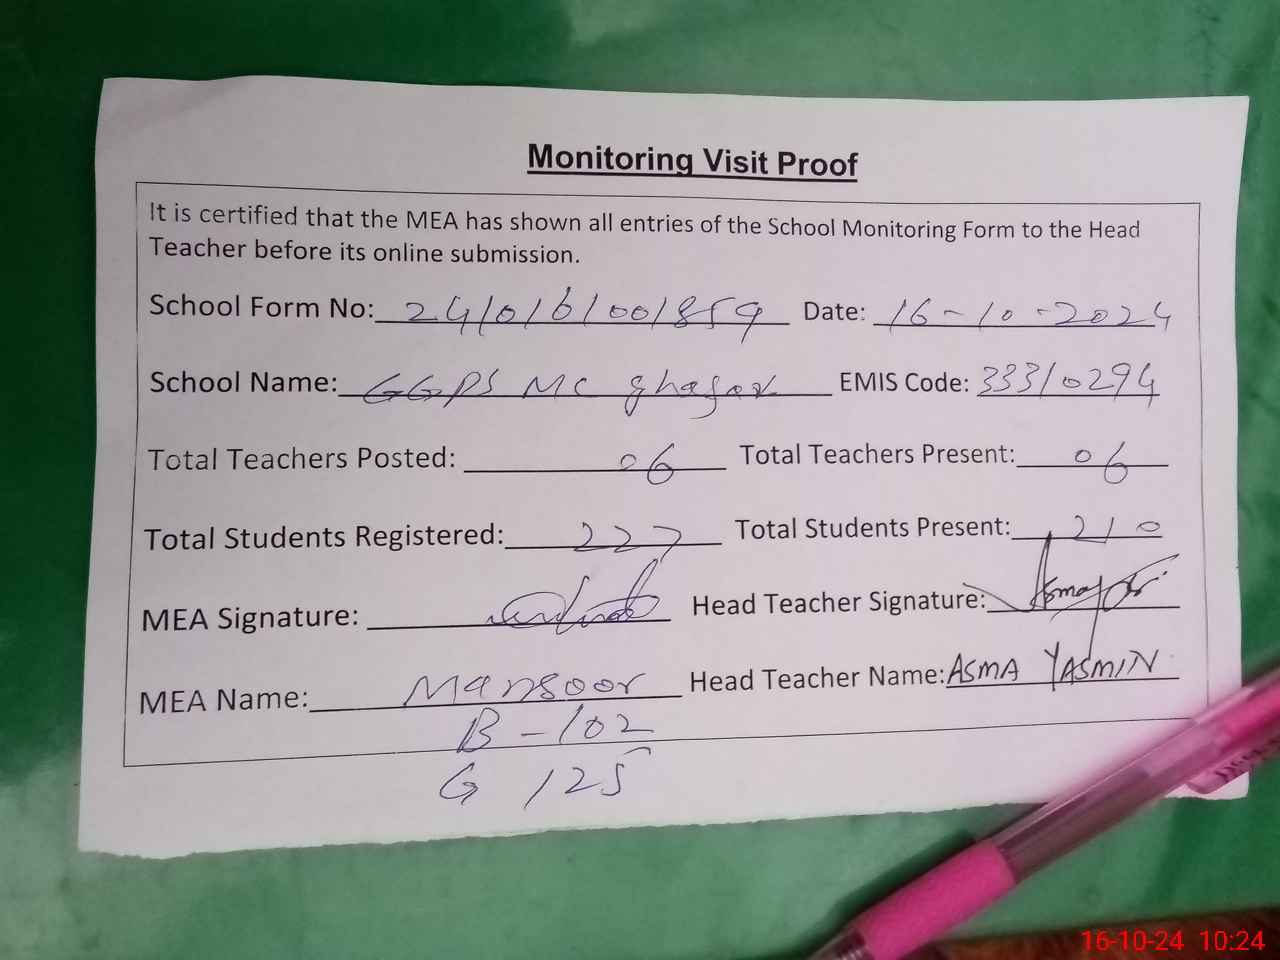 Monitoring Visit Proof
It is certified that the MEA has shown all entries of the School Monitoring Form to the Head
Teacher before its online submission.
School Form No: 24/0161001859 Date: 16-10-2024
School Name: GGPS MC Ghafar EMIS Code: 33310294
Total Teachers Posted: 06 Total Teachers Present: 06
Total Students Registered: 227 Total Students Present: 210
MEA Signature: Head Teacher Signature:
MEA Name: Mansoor Head Teacher Name: ASMA YASMIN
B - 102
G 125
16-10-24 10:24